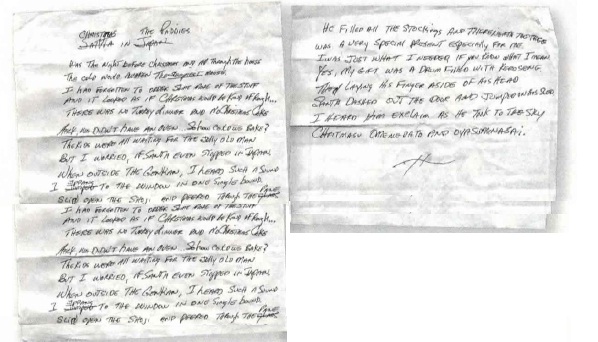 CHRISTMAS IN THE PADDIES
SANTA IN JAPAN
WAS THE NIGHT BEFORE CHRISTMAS AND ALL THROUGH THE HOUSE
THE COLD WIND
I HAD FORGOTTEN TO ORDER SOME MORE OF THE STUFF
AND IT LOOKED AS IF CHRISTMAS WOULD BE KIND OF ROUGH...
THERE WAS NO TURKEY DINNER AND NO CHRISTMAS CAKE
WE DIDN'T HAVE AN OVEN. SO HOW COULD WE BAKE?
THE KIDS WERE ALL WAITING FOR THE JOLLY OLD MAN
BUT I WORRIED, IF SANTA EVEN STOPPED IN JAPAN
WHEN OUTSIDE THE GENKAN, I HEARD SUCH A SOUND
I SPRANG TO THE WINDOW IN ONE SINGLE BOUND
SLID OPEN THE SHOJI AND PEERED THROUGH THE PANES
I HAD FORGOTTEN TO ORDER SOME MORE OF THE STUFF
AND IT LOOKED AS IF CHRISTMAS WOULD BE KIND OF ROUGH...
THERE WAS NO TURKEY DINNER AND NO CHRISTMAS CAKE
WE DIDN'T HAVE AN OVEN. SO HOW COULD WE BAKE?
THE KIDS WERE ALL WAITING FOR THE JOLLY OLD MAN
BUT I WORRIED, IF SANTA EVEN STOPPED IN JAPAN
WHEN OUTSIDE THE GENKAN, I HEARD SUCH A SOUND
I SPRANG TO THE WINDOW IN ONE SINGLE BOUND
SLID OPEN THE SHOJI AND PEERED THROUGH THE PANES
HE FILLED ALL THE STOCKINGS AND UNDERNEATH THE TREE
WAS A VERY SPECIAL PRESENT ESPECIALLY FOR ME
IT WAS JUST WHAT I NEEDED IF YOU KNOW WHAT I MEAN
YES, MY GIFT WAS A DRUM FILLED WITH KEROSENE
THEN LAYING HIS FINGER ASIDE OF HIS HEAD
SANTA DASHED OUT THE DOOR AND JUMPED ON HIS SLED
I HEARD HIM EXCLAIM AS HE TOOK TO THE SKY
CHRISTMASU OMEDETO AND OYASUMINASAI.